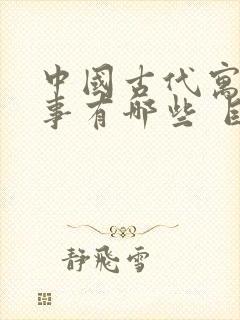 中國古代寓
事有哪些
靜飛雪